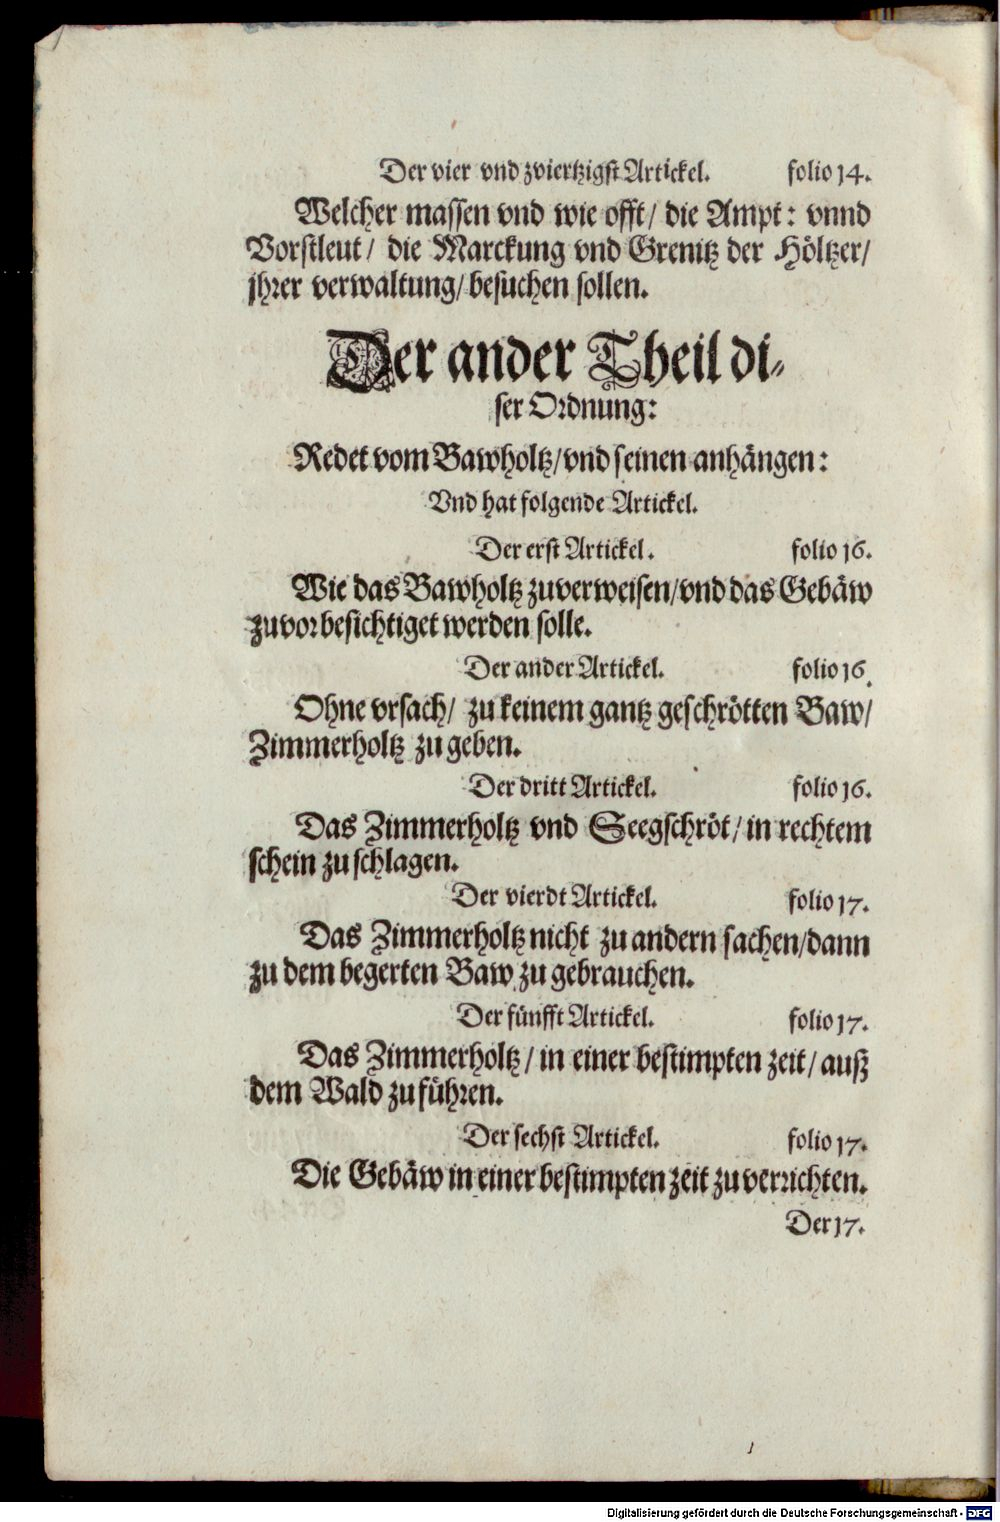 Der vier vnd zviertzigst Artickel. folio 14.
Welcher massen vnd wie offt/ die Ampt: vnnd
Vorstleut/ die Marckung vnd Grenitz der Höltzer/
jhrer verwaltung/ besuchen sollen.
Der ander Theil di-
ser Ordnung:
Redet vom Bawholtz/ vnd seinen anhängen:
Vnd hat folgende Artickel.
Der erst Artickel. folio 16.
Wie das Bawholtz zuverweisen/ vnd das Gebäw
zuvor besichtiget werden solle.
Der ander Artickel. folio 16.
Ohne vrsach/ zu keinem gantz geschrötten Baw/
Zimmerholtz zu geben.
Der dritt Artickel. folio 16.
Das Zimmerholtz vnd Seegschröt/ in rechtem
schein zu schlagen.
Der vierdt Artickel. folio 17.
Das Zimmerholtz nicht zu andern sachen/ dann
zu dem begerten Baw zu gebrauchen.
Der fünfft Artickel. folio 17.
Das Zimmerholtz/ in einer bestimpten zeit/ auß
dem Wald zu führen.
Der sechst Artickel. folio 17.
Die Gebäw in einer bestimpten zeit zu verrichten.
Der 17.
Digitalisierung gefördert durch die Deutsche Forschungsgemeinschaft - DFG